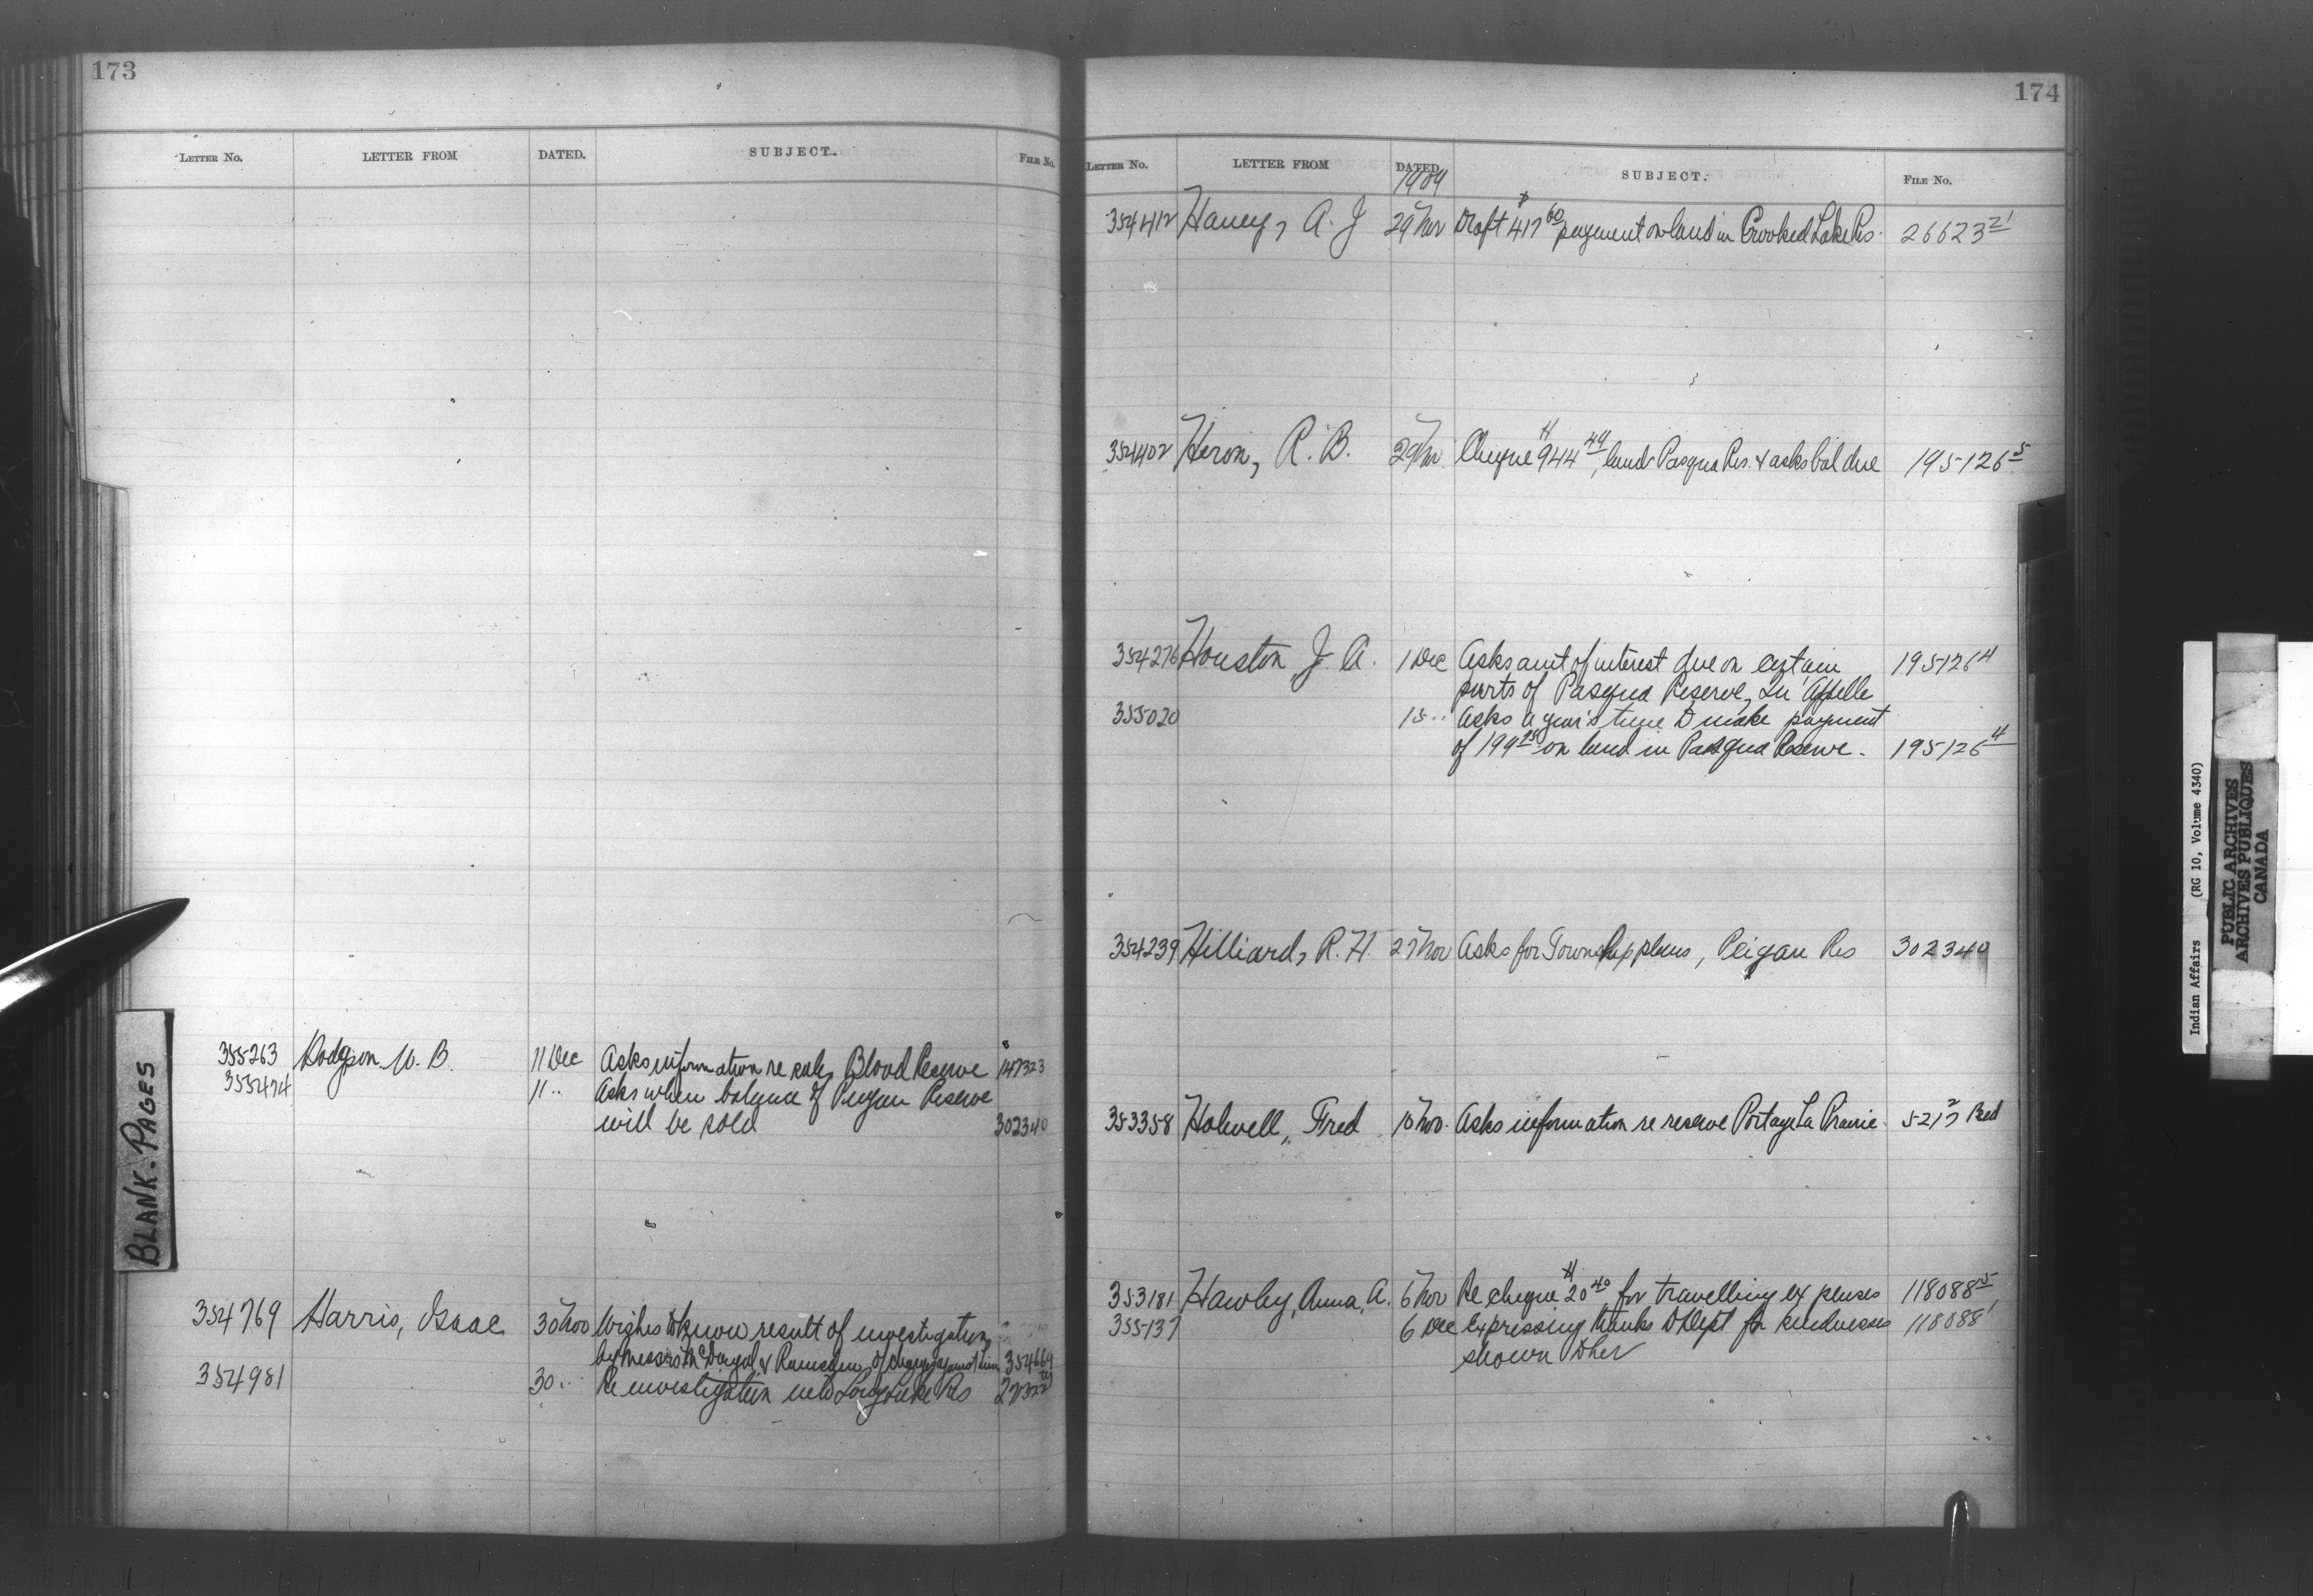 173
LETTER No. LETTER FROM DATED. SUBJECT. FILE No.
355263 Hodgson W. B. 11 Dec Asks information re sale, Blood Reserve 147323 8
355474 11 .. Asks when balance of Peigan Reserve
will be sold 302340
BLANK-PAGES
354769 Harris, Isaac 30 Nov Wishes to know result of investigation
by Messrs of charges against him 354669
354981 30 .. Re investigation into Long Lake Res
174
LETTER No. LETTER FROM DATED. SUBJECT. FILE No.
1909
354412 Haney, A. J 29 Nov Draft $417 60 payment on land in Crooked Lake Res. 26623 21
354402 Heron, R. B. 29 Nov Cheque $944 49, land Pasqua Res. & asks bal due 195126 5
354276 Houston J. A. 1 Dec Asks amt of interest due on certain 195126 4
parts of Pasqua Reserve, Qu'Appelle
355020 15 .. Asks a year's time to make payment
of 199 on land in Pasqua Reserve. 195126 4
354239 Hilliard, R. H. 27 Nov Asks for Township plans, Peigan Res 302340
353358 Holwell, Fred 10 Nov. Asks information re reserve Portage La Prairie. 5217 2 Red
353181 Hawley, Anna, A. 6 Nov Re cheque $20 40 for travelling expenses 118088 5
355137 6 Dec Expressing thanks to Dept for kindnesses 118088 1
shown to her
Indian Affairs (RG 10, Volume 4340)
PUBLIC ARCHIVES
ARCHIVES PUBLIQUES
CANADA